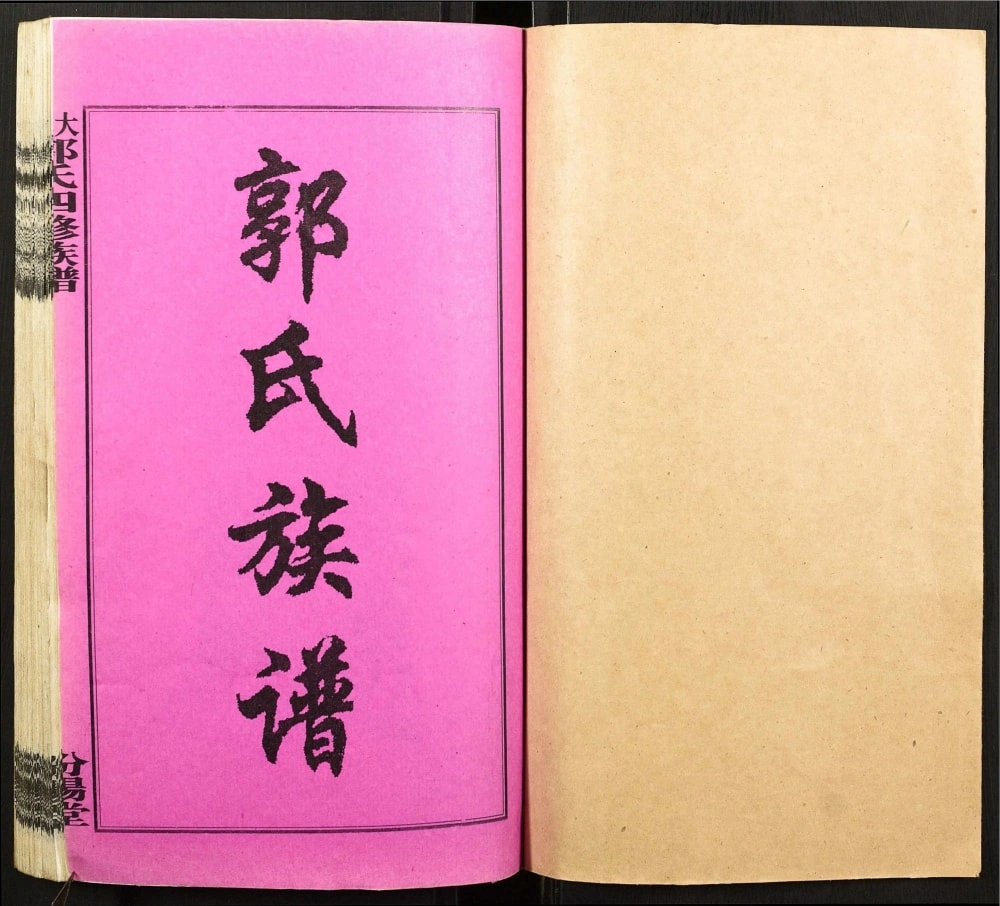 郭氏族谱
大郭氏四修族谱
汾陽堂